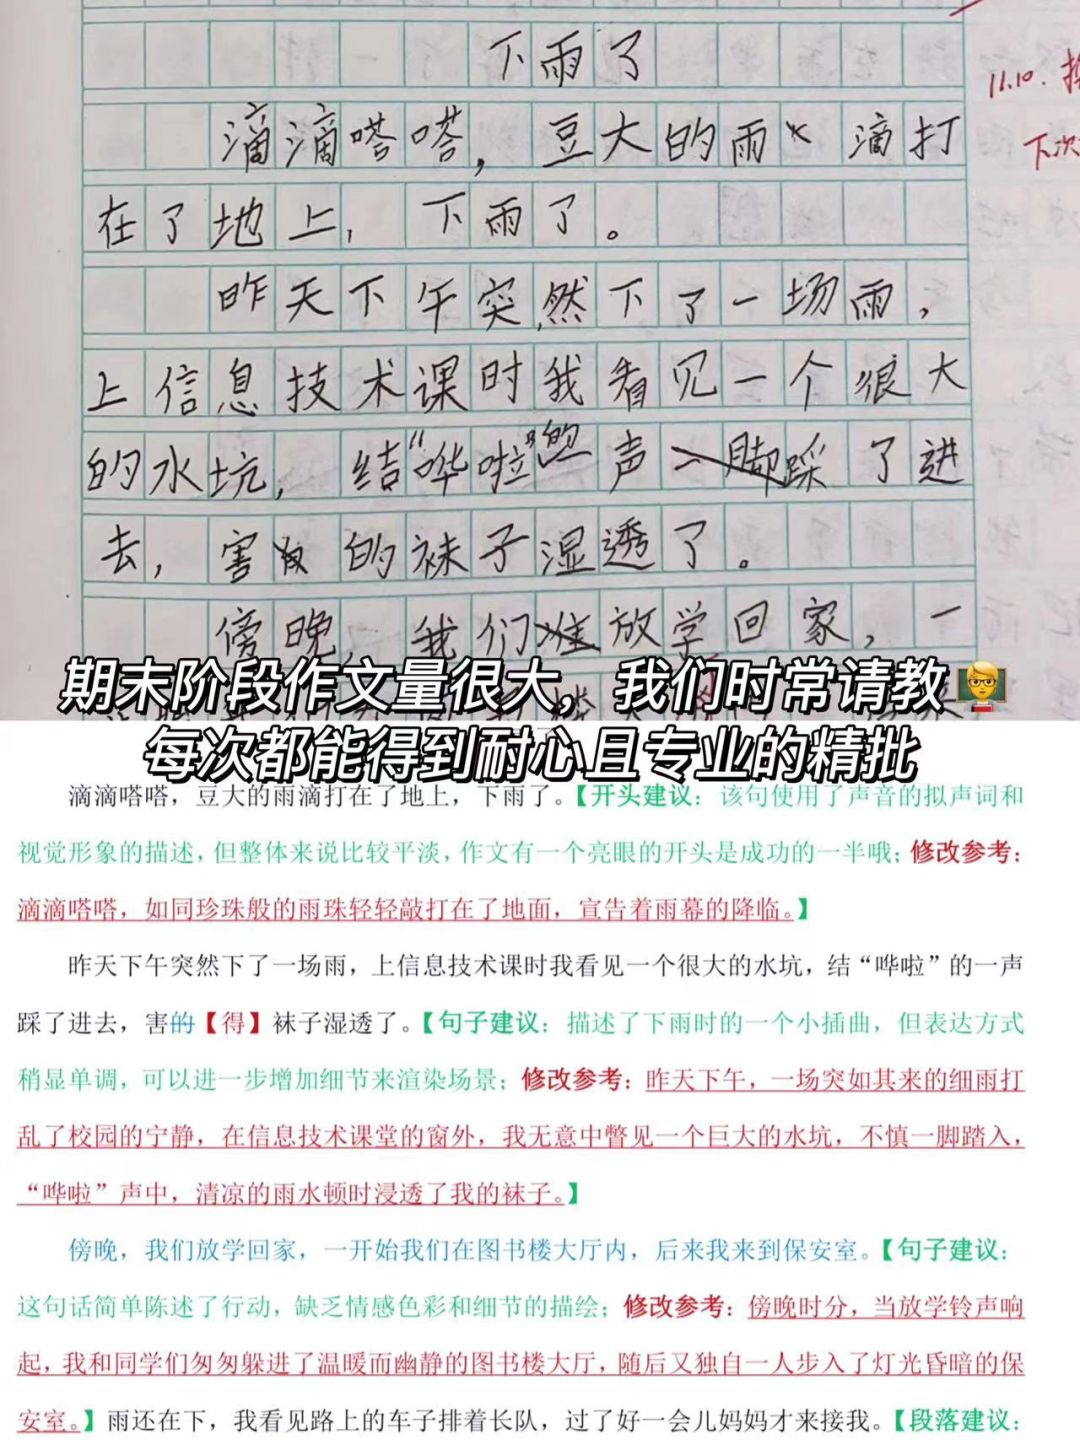 下雨了
11.10.
滴滴嗒嗒，豆大的雨滴打
下次
在了地上，下雨了。
昨天下午突然下了一场雨，
上信息技术课时我看见一个很大
的水坑，结“哗啦”的一声脚踩了进
去，害的袜子湿透了。
傍晚，我们放学回家，一
期末阶段作文量很大，我们时常请教
每次都能得到耐心且专业的精批
滴滴嗒嗒，豆大的雨滴打在了地上，下雨了。【开头建议：该句使用了声音的拟声词和
视觉形象的描述，但整体来说比较平淡，作文有一个亮眼的开头是成功的一半哦；修改参考：
滴滴嗒嗒，如同珍珠般的雨珠轻轻敲打在了地面，宣告着雨幕的降临。】
昨天下午突然下了一场雨，上信息技术课时我看见一个很大的水坑，结“哗啦”的一声
踩了进去，害的【得】袜子湿透了。【句子建议：描述了下雨时的一个小插曲，但表达方式
稍显单调，可以进一步增加细节来渲染场景；修改参考：昨天下午，一场突如其来的细雨打
乱了校园的宁静，在信息技术课堂的窗外，我无意中瞥见一个巨大的水坑，不慎一脚踏入，
“哗啦”声中，清凉的雨水顿时浸透了我的袜子。】
傍晚，我们放学回家，一开始我们在图书楼大厅内，后来我来到保安室。【句子建议：
这句话简单陈述了行动，缺乏情感色彩和细节的描绘；修改参考：傍晚时分，当放学铃声响
起，我和同学们匆匆躲进了温暖而幽静的图书楼大厅，随后又独自一人步入了灯光昏暗的保
安室。】雨还在下，我看见路上的车子排着长队，过了好一会儿妈妈才来接我。【段落建议：